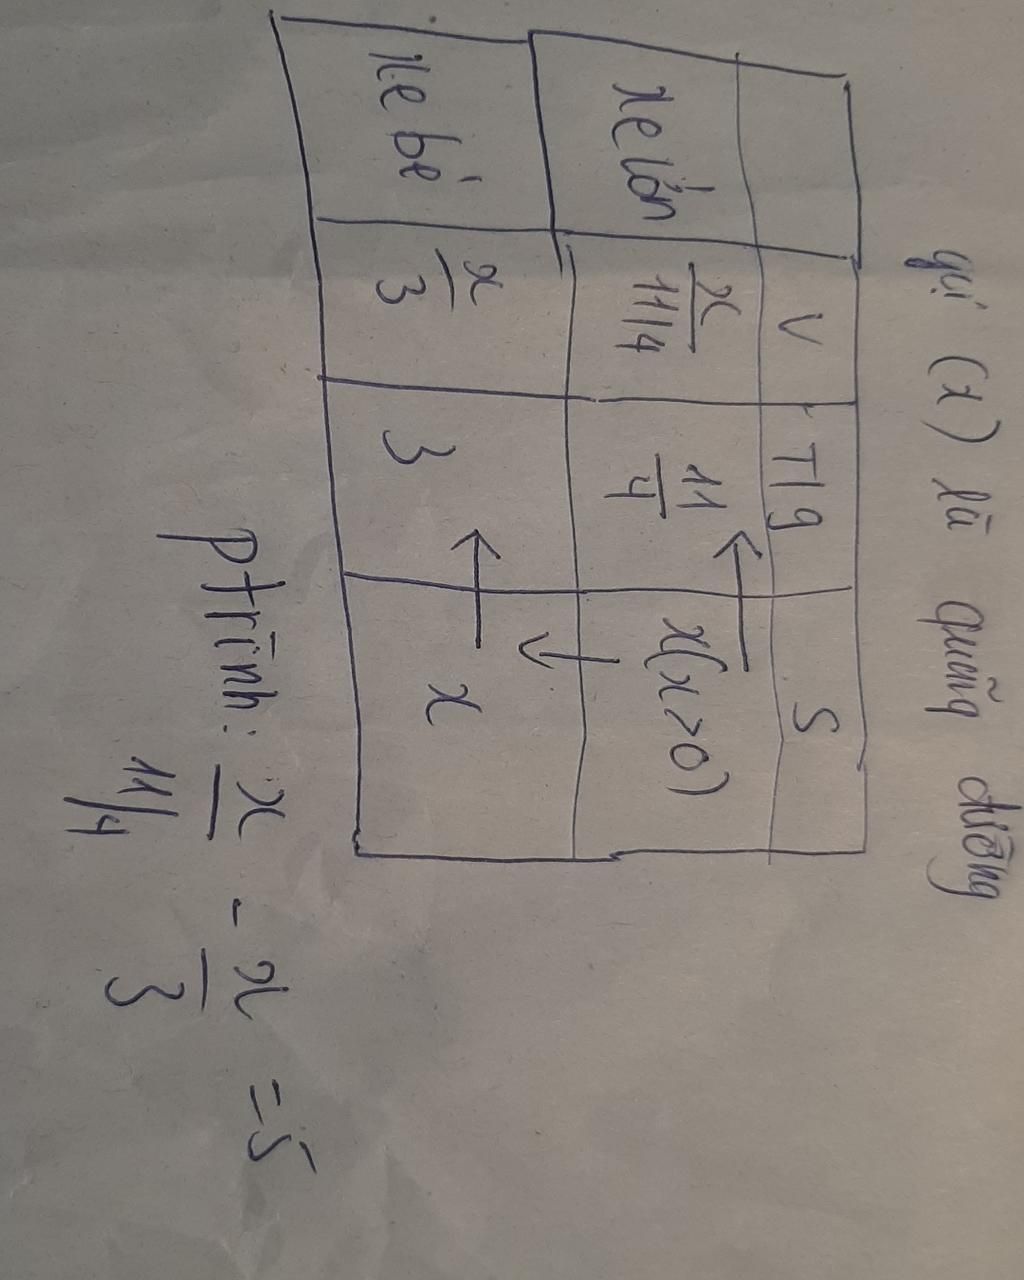 gọi (x) là quãng đường
V Tlg S
xe lớn x/11/4 11/4 x(x>0)
xe bé x/3 3 x
ptrình: x/11/4 - x/3 = 5